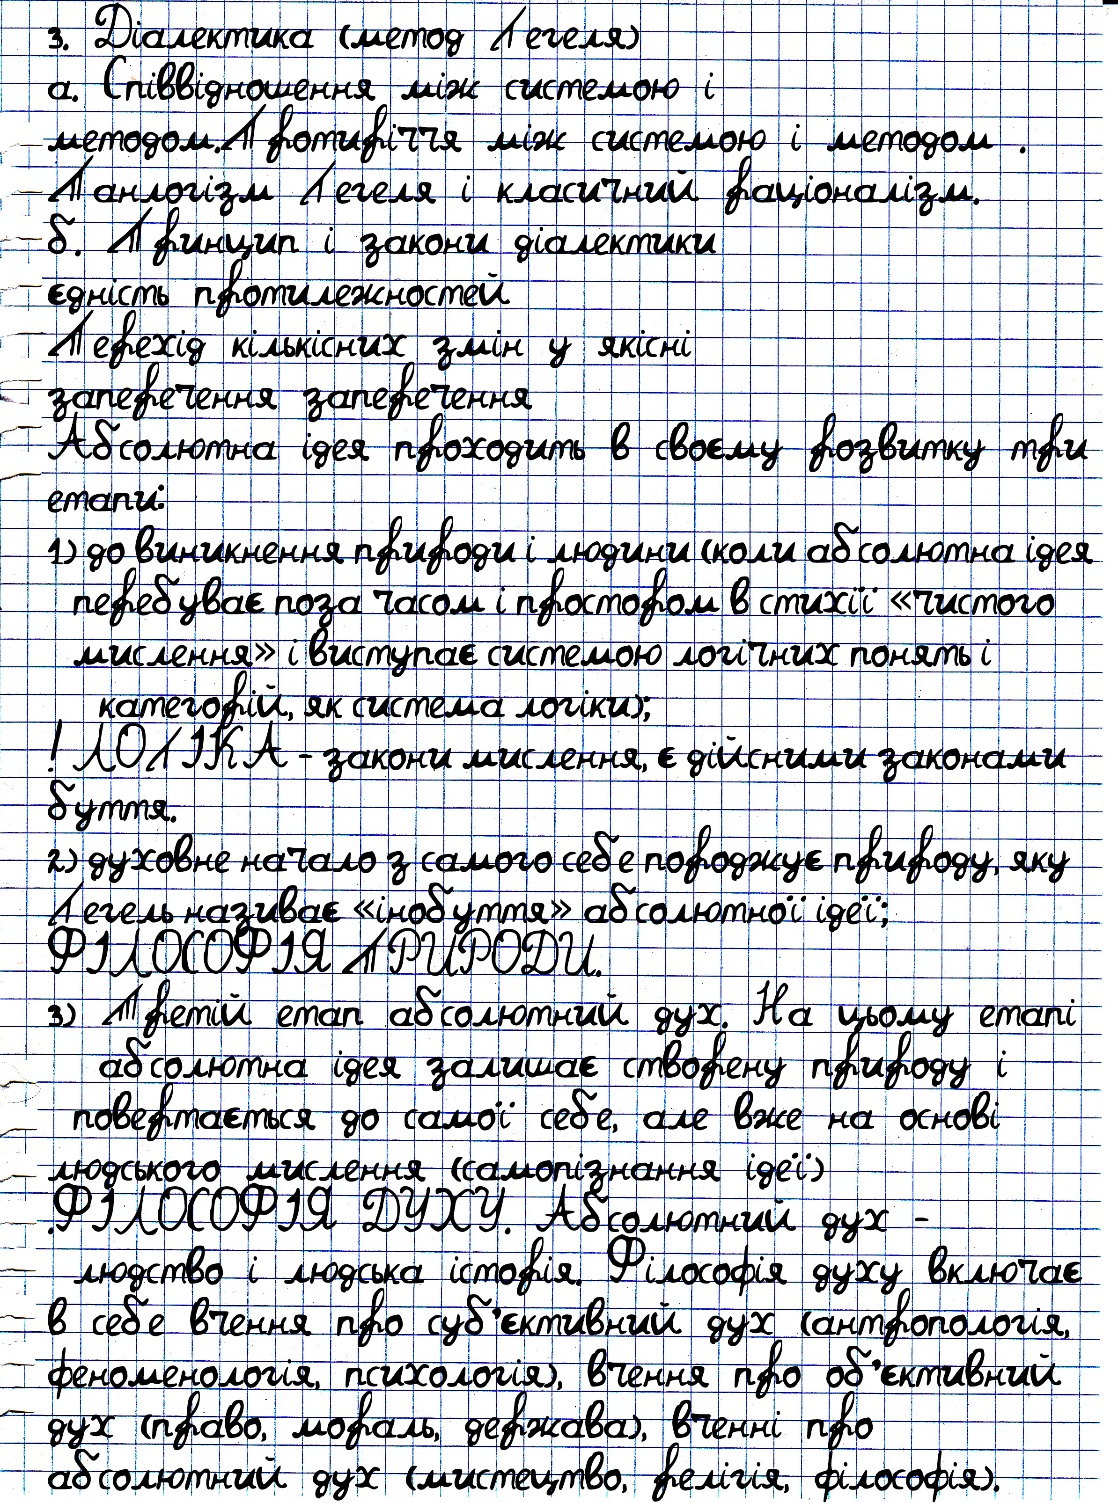 3. Діалектика (метод Гегеля)
а. Співвідношення між системою і
методом. Протиріччя між системою і методом .
Панлогізм Гегеля і класичний раціоналізм.
б. Принцип і закони діалектики
єдність протилежностей
Перехід кількісних змін у якісні
заперечення заперечення
Абсолютна ідея проходить в своєму розвитку три
етапи:
1) до виникнення природи і людини (коли абсолютна ідея
перебуває поза часом і простором в стихії «чистого
мислення» і виступає системою логічних понять і
категорій, як система логіки);
! ЛОГІКА – закони мислення, є дійсними законами
буття.
2) духовне начало з самого себе породжує природу, яку
Гегель називає «інобуття» абсолютної ідеї;
ФІЛОСОФІЯ ПРИРОДИ.
3) Третій етап абсолютний дух. На цьому етапі
абсолютна ідея залишає створену природу і
повертається до самої себе, але вже на основі
людського мислення (самопізнання ідеї)
.ФІЛОСОФІЯ ДУХУ. Абсолютний дух –
людство і людська історія. Філософія духу включає
в себе вчення про суб'єктивний дух (антропологія,
феноменологія, психологія), вчення про об'єктивний
дух (право, мораль, держава), вченні про
абсолютний дух (мистецтво, релігія, філософія).